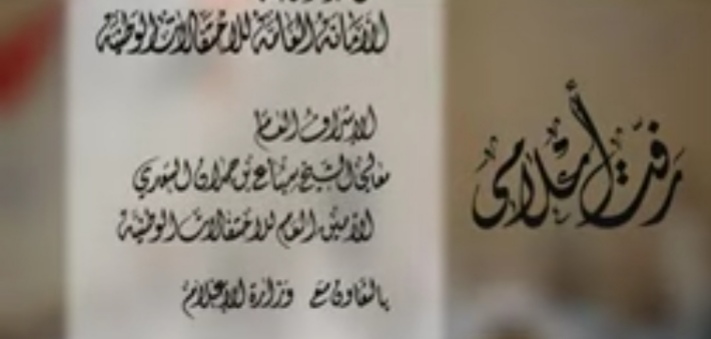 الأمانة العامة للاحتفالات الوطنية
رفت أعلامي
الإشراف العام
معالي الشيخ سباع بن حمدان السعدي
الأمين العام للاحتفالات الوطنية
بالتعاون مع وزارة الإعلام